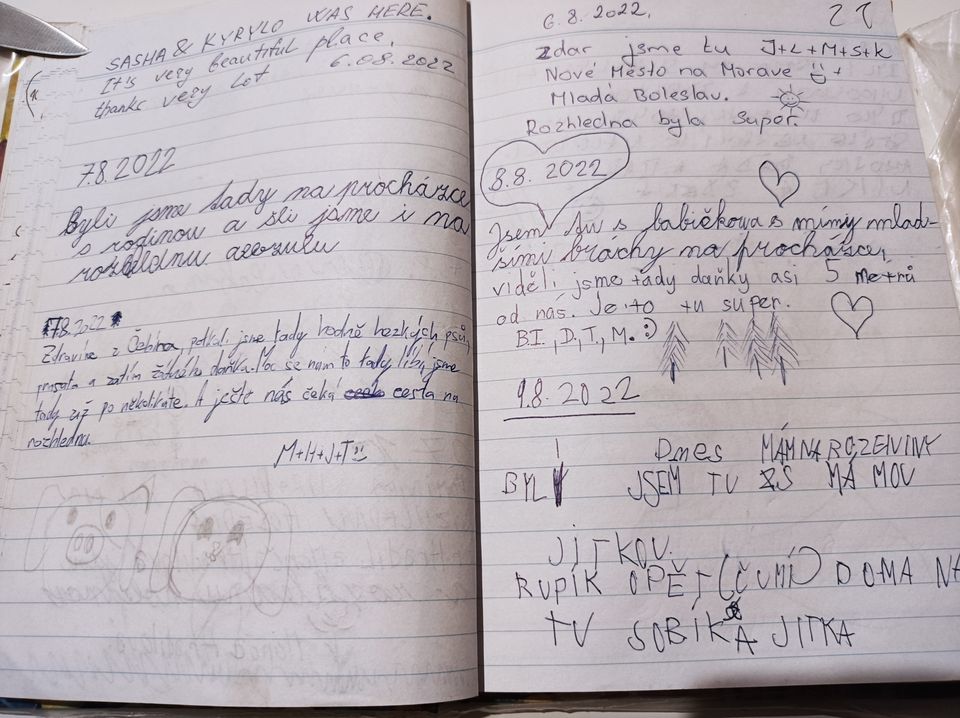 SASHA & KYRYLO WAS HERE.
It's very beautiful place,
thanks very lot 6.08.2022
7.8.2022
Byli jsme tady na procházce
s rodinou a šli jsme i na
rozhlednu
7.8.2022
Zdravíme z potkali jsme tady hodně hezkých psů,
prasata a zatím žádného daňka. Moc se nám to tady líbí, jsme
tady už po několikáté. A ještě nás čeká cesta na
rozhlednu.
M+H+J+T
6.8.2022,
Zdar jsme tu J+L+M+S+K
Nové Město na Morave +
Mladá Boleslav.
Rozhledna byla super.
8.8. 2022
Jsem tu s babičkou a s mímy mlad-
šími bráchy na procházce,
viděli jsme tady daňky asi 5 metrů
od nás. Je to tu super.
BI., D., T., M. :)
9.8. 2022
Dnes MÁM NAROZENINY
BYL JSEM TU S MÁ MOU
JITKOU.
RUPÍK OPĚT (ČUMÍ) DOMA NA
TV SOBÍK A JITKA